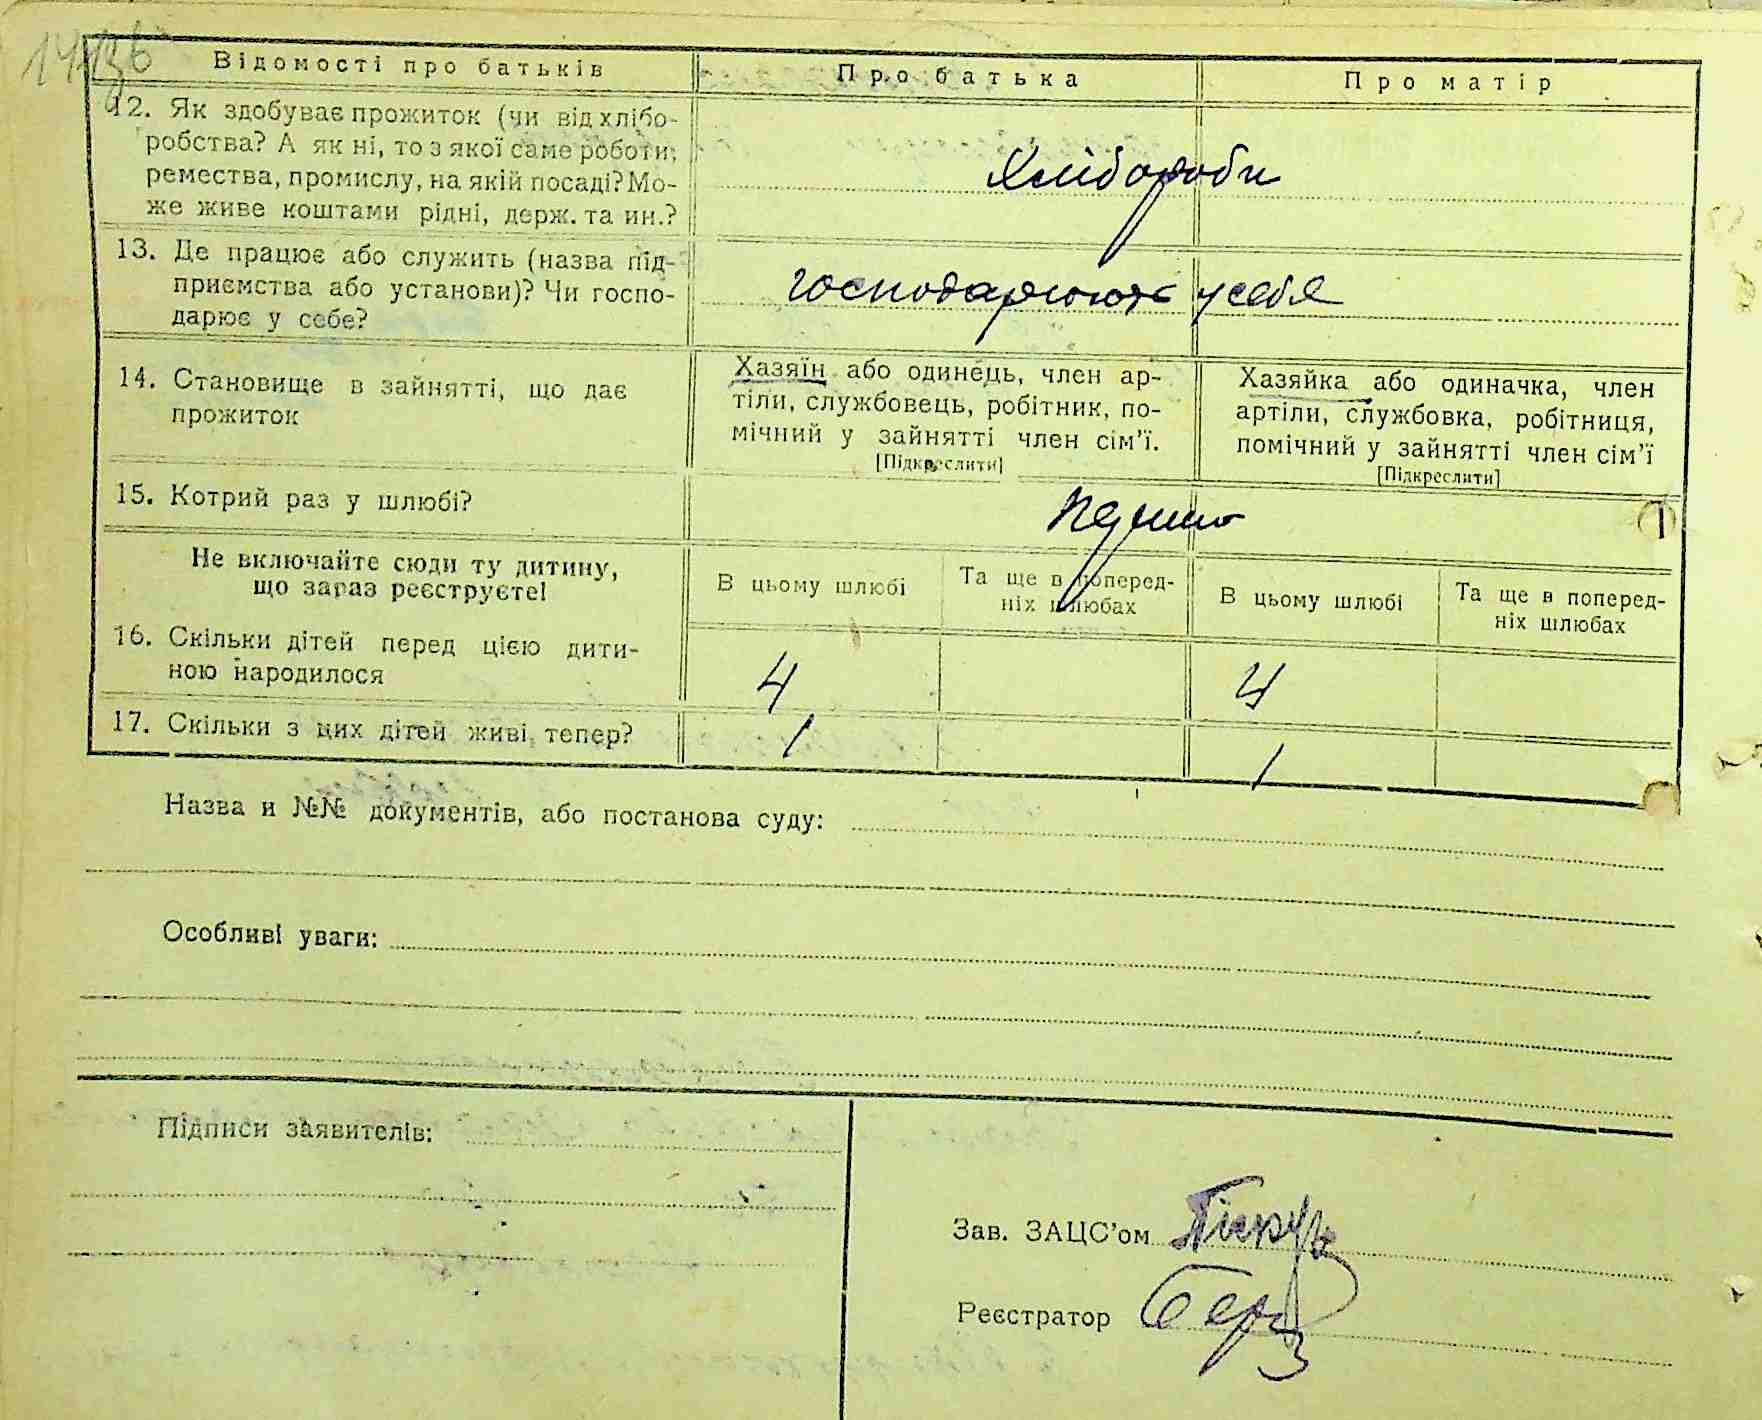 Відомості про батьків
Про батька
Про матір
12. Як здобуває прожиток (чи від хлібо-
робства? А як ні, то з якої саме роботи;
ремества, промислу, на якій посаді? Мо-
же живе коштами рідні, держ. та ин.?
Хлібороби
13. Де працює або служить (назва під-
приємства або установи)? Чи госпо-
дарює у себе?
господарюють у себя
14. Становище в зайнятті, що дає
прожиток
Хазяїн або одинець, член ар-
тіли, службовець, робітник, по-
мічний у зайнятті член сім'ї.
[Підкреслити]
Хазяйка або одиначка, член
артіли, службовка, робітниця,
помічний у зайнятті член сім'ї
[Підкреслити]
15. Котрий раз у шлюбі?
Не включайте сюди ту дитину,
що зараз реєструєте!
В цьому шлюбі
Та ще в поперед-
ніх шлюбах
В цьому шлюбі
Та ще в поперед-
ніх шлюбах
16. Скільки дітей перед цією дити-
ною народилося
4
4
17. Скільки з цих дітей живі тепер?
1
1
Назва и №№ документів, або постанова суду:
Особливі уваги:
Підписи заявителів:
Зав. ЗАЦС'ом
Реєстратор